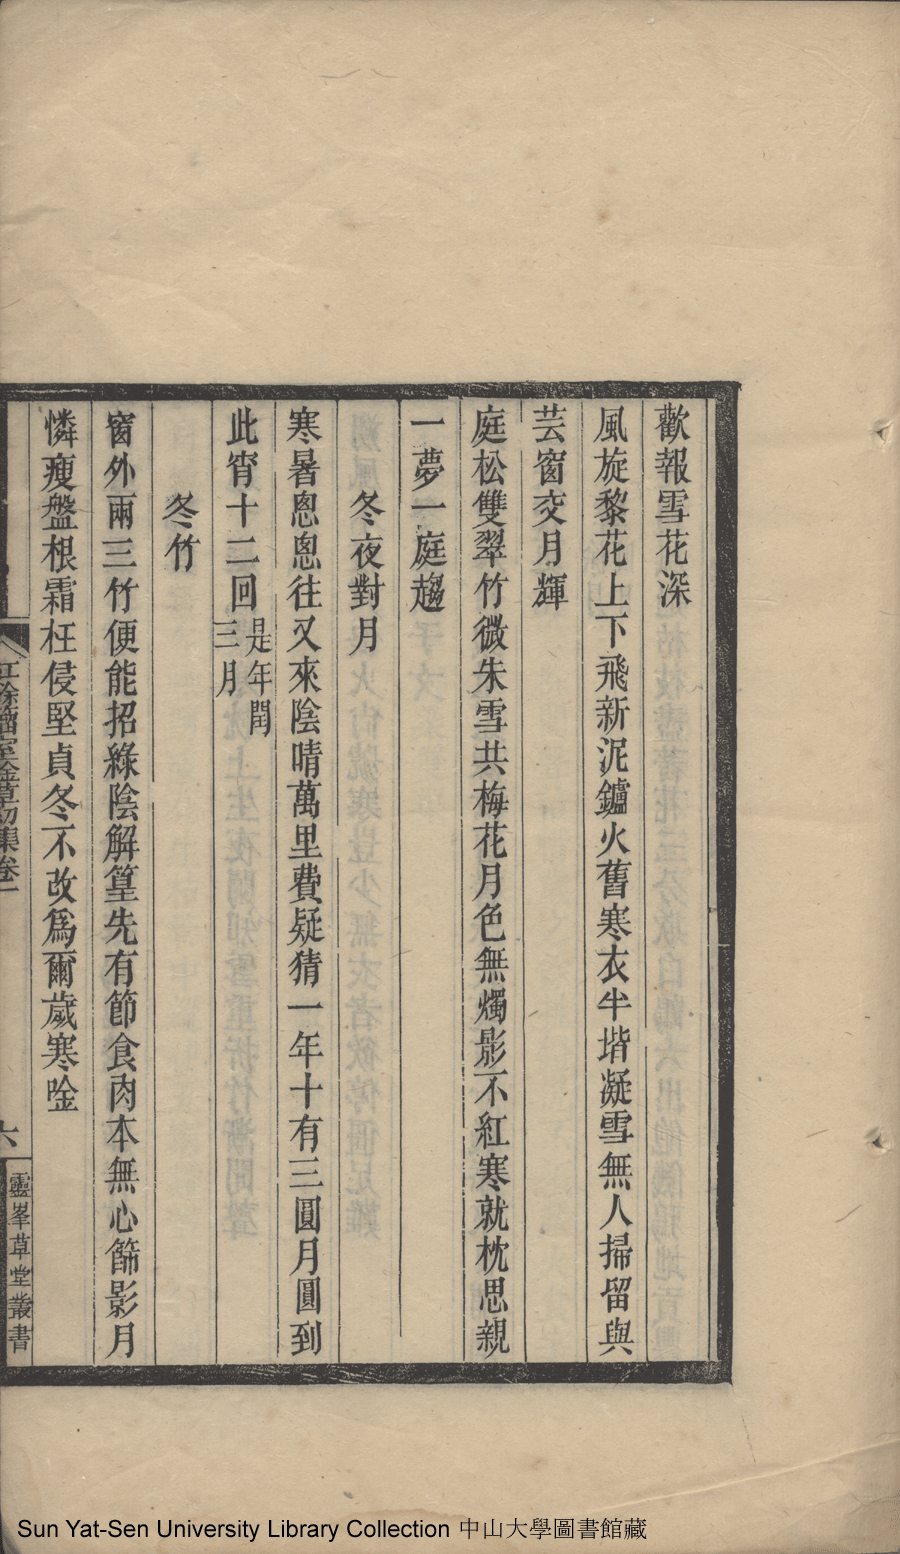 歡報雪花深
風旋黎花上下飛新泥鑪火舊寒衣半堦凝雪無人掃留與
芸窗交月輝
庭松雙翠竹微朱雪共梅花月色無燭影不紅寒就枕思親
一夢一庭趨
冬夜對月
寒暑悤悤往又來陰晴萬里費疑猜一年十有三圓月圓到
此宵十二回是年閏三月
冬竹
窗外兩三竹便能招綠陰解篁先有節食肉本無心篩影月
憐瘦盤根霜枉侵堅貞冬不改爲爾歲寒唫
室唫草初集卷一
六
靈峯草堂叢書
Sun Yat-Sen University Library Collection 中山大學圖書館藏